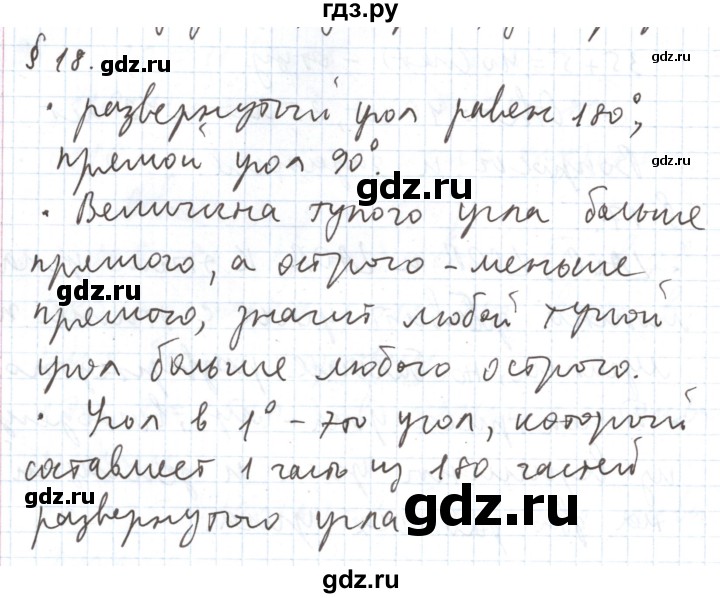 гдз.ру
§ 18.
gdz.ru
gdz.ru
• развернутый угол равен 180°,
прямой угол 90°.
gdz.ru
gdz.ru
• Величина тупого угла больше
прямого, а острого – меньше
gdz.ru
прямого, значит любой тупой
gdz.ru
угол больше любого острого.
• Угол в 1° – это угол, который
составляет 1 часть из 180 частей
gdz.ru
развернутого угла
gdz.ru
gdz.ru